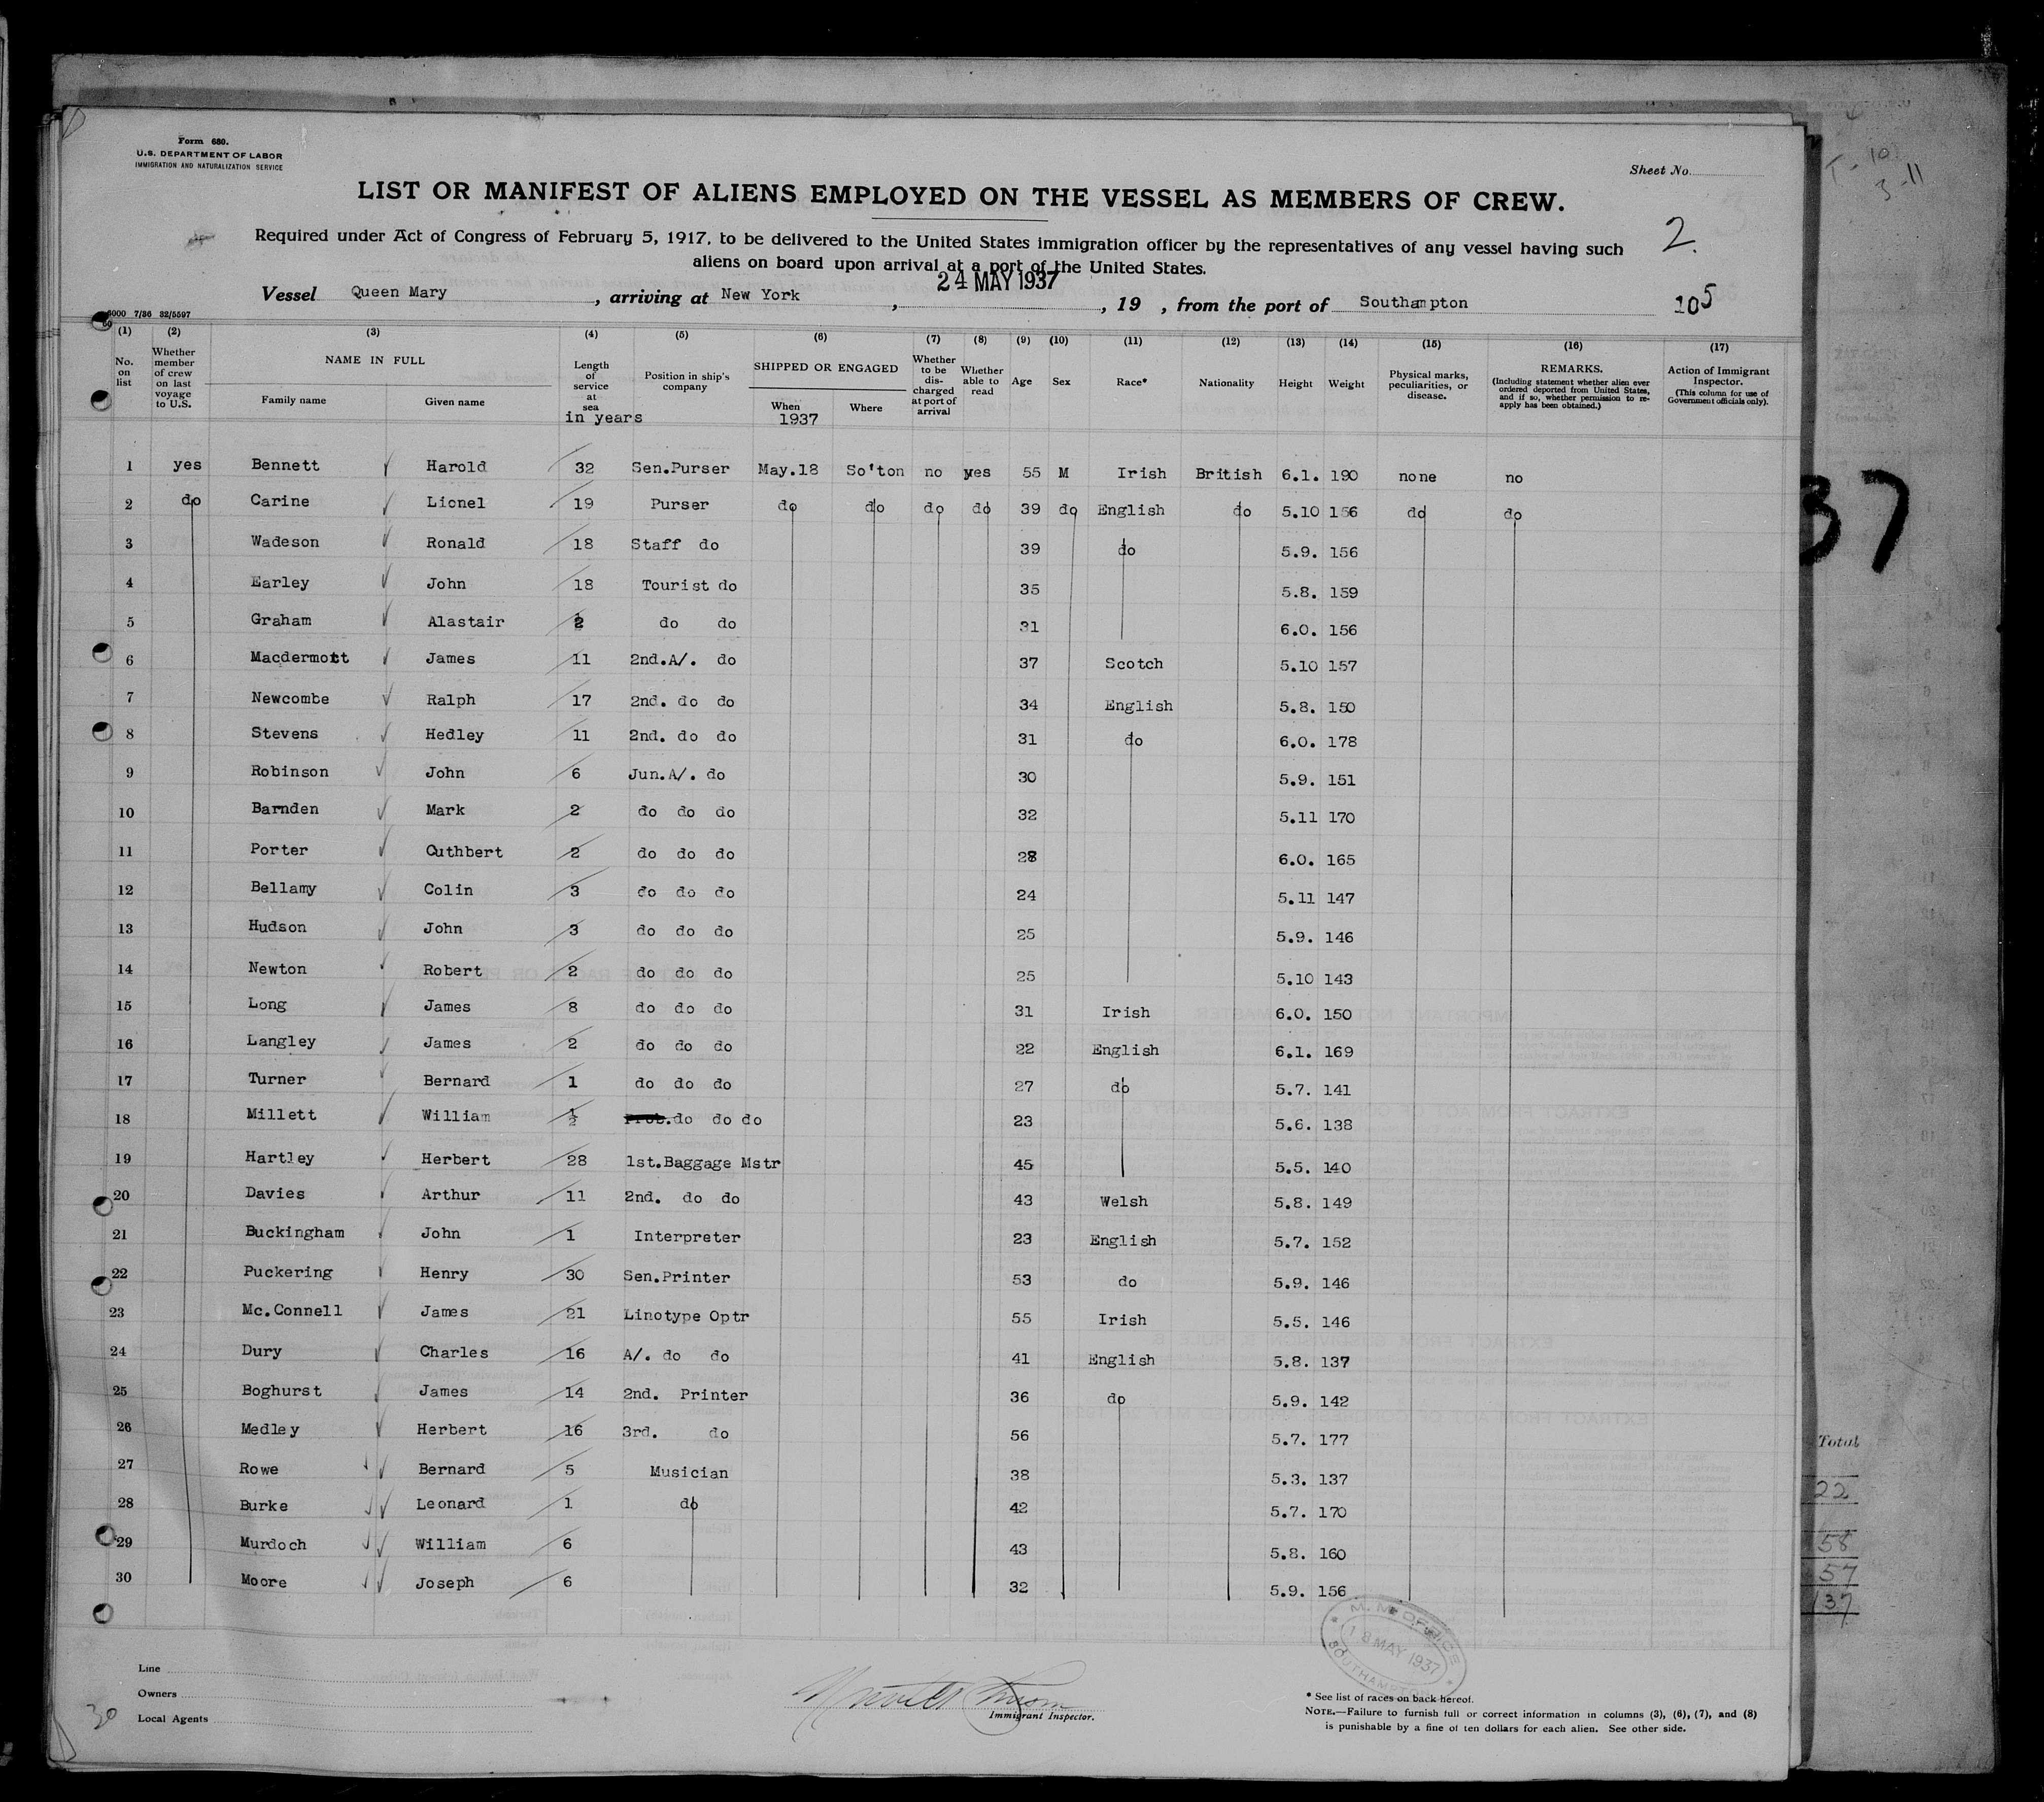 Form 680.
U.S. DEPARTMENT OF LABOR
IMMIGRATION AND NATURALIZATION SERVICE
Sheet No.
LIST OR MANIFEST OF ALIENS EMPLOYED ON THE VESSEL AS MEMBERS OF CREW.
2.
Required under Act of Congress of February 5, 1917, to be delivered to the United States immigration officer by the representatives of any vessel having such
aliens on board upon arrival at a port of the United States.
24 MAY 1937
Vessel Queen Mary, arriving at New York, , 19 , from the port of Southampton 105
6000 7/36 32/5597
(1) (2) (3) (4) (5) (6) (7) (8) (9) (10) (11) (12) (13) (14) (15) (16) (17)
No. on list
Whether member of crew on last voyage to U.S.
NAME IN FULL
Family name Given name
Length of service at sea
in years
Position in ship's company
SHIPPED OR ENGAGED
When Where
1937
Whether to be discharged at port of arrival
Whether able to read
Age
Sex
Race*
Nationality
Height
Weight
Physical marks, peculiarities, or disease.
REMARKS.
(Including statement whether alien ever ordered deported from United States, and if so, whether permission to re-apply has been obtained.)
Action of Immigrant Inspector.
(This column for use of Government officials only).
1 yes Bennett Harold 32 Sen.Purser May.18 So'ton no yes 55 M Irish British 6.1. 190 none no
2 do Carine Lionel 19 Purser do do do do 39 do English do 5.10 156 do do
3 Wadeson Ronald 18 Staff do 39 do 5.9. 156
4 Earley John 18 Tourist do 35 5.8. 159
5 Graham Alastair do do 31 6.0. 156
6 Macdermott James 11 2nd.A/. do 37 Scotch 5.10 157
7 Newcombe Ralph 17 2nd. do do 34 English 5.8. 150
8 Stevens Hedley 11 2nd. do do 31 do 6.0. 178
9 Robinson John 6 Jun.A/. do 30 5.9. 151
10 Barnden Mark 2 do do do 32 5.11 170
11 Porter Cuthbert 2 do do do 28 6.0. 165
12 Bellamy Colin 3 do do do 24 5.11 147
13 Hudson John 3 do do do 25 5.9. 146
14 Newton Robert 2 do do do 25 5.10 143
15 Long James 8 do do do 31 Irish 6.0. 150
16 Langley James 2 do do do 22 English 6.1. 169
17 Turner Bernard 1 do do do 27 do 5.7. 141
18 Millett William ½ do do do 23 5.6. 138
19 Hartley Herbert 28 1st.Baggage Mstr 45 5.5. 140
20 Davies Arthur 11 2nd. do do 43 Welsh 5.8. 149
21 Buckingham John 1 Interpreter 23 English 5.7. 152
22 Puckering Henry 30 Sen.Printer 53 do 5.9. 146
23 Mc.Connell James 21 Linotype Optr 55 Irish 5.5. 146
24 Dury Charles 16 A/. do do 41 English 5.8. 137
25 Boghurst James 14 2nd. Printer 36 do 5.9. 142
26 Medley Herbert 16 3rd. do 56 5.7. 177
27 Rowe Bernard 5 Musician 38 5.3. 137
28 Burke Leonard 1 do 42 5.7. 170
29 Murdoch William 6 43 5.8. 160
30 Moore Joseph 6 32 5.9. 156
M. M. OFFICE
18 MAY 1937
SOUTHAMPTON
Line
Owners
Local Agents
30
Immigrant Inspector.
* See list of races on back hereof.
NOTE.—Failure to furnish full or correct information in columns (3), (6), (7), and (8)
is punishable by a fine of ten dollars for each alien. See other side.
37
Total
22
58
57
137